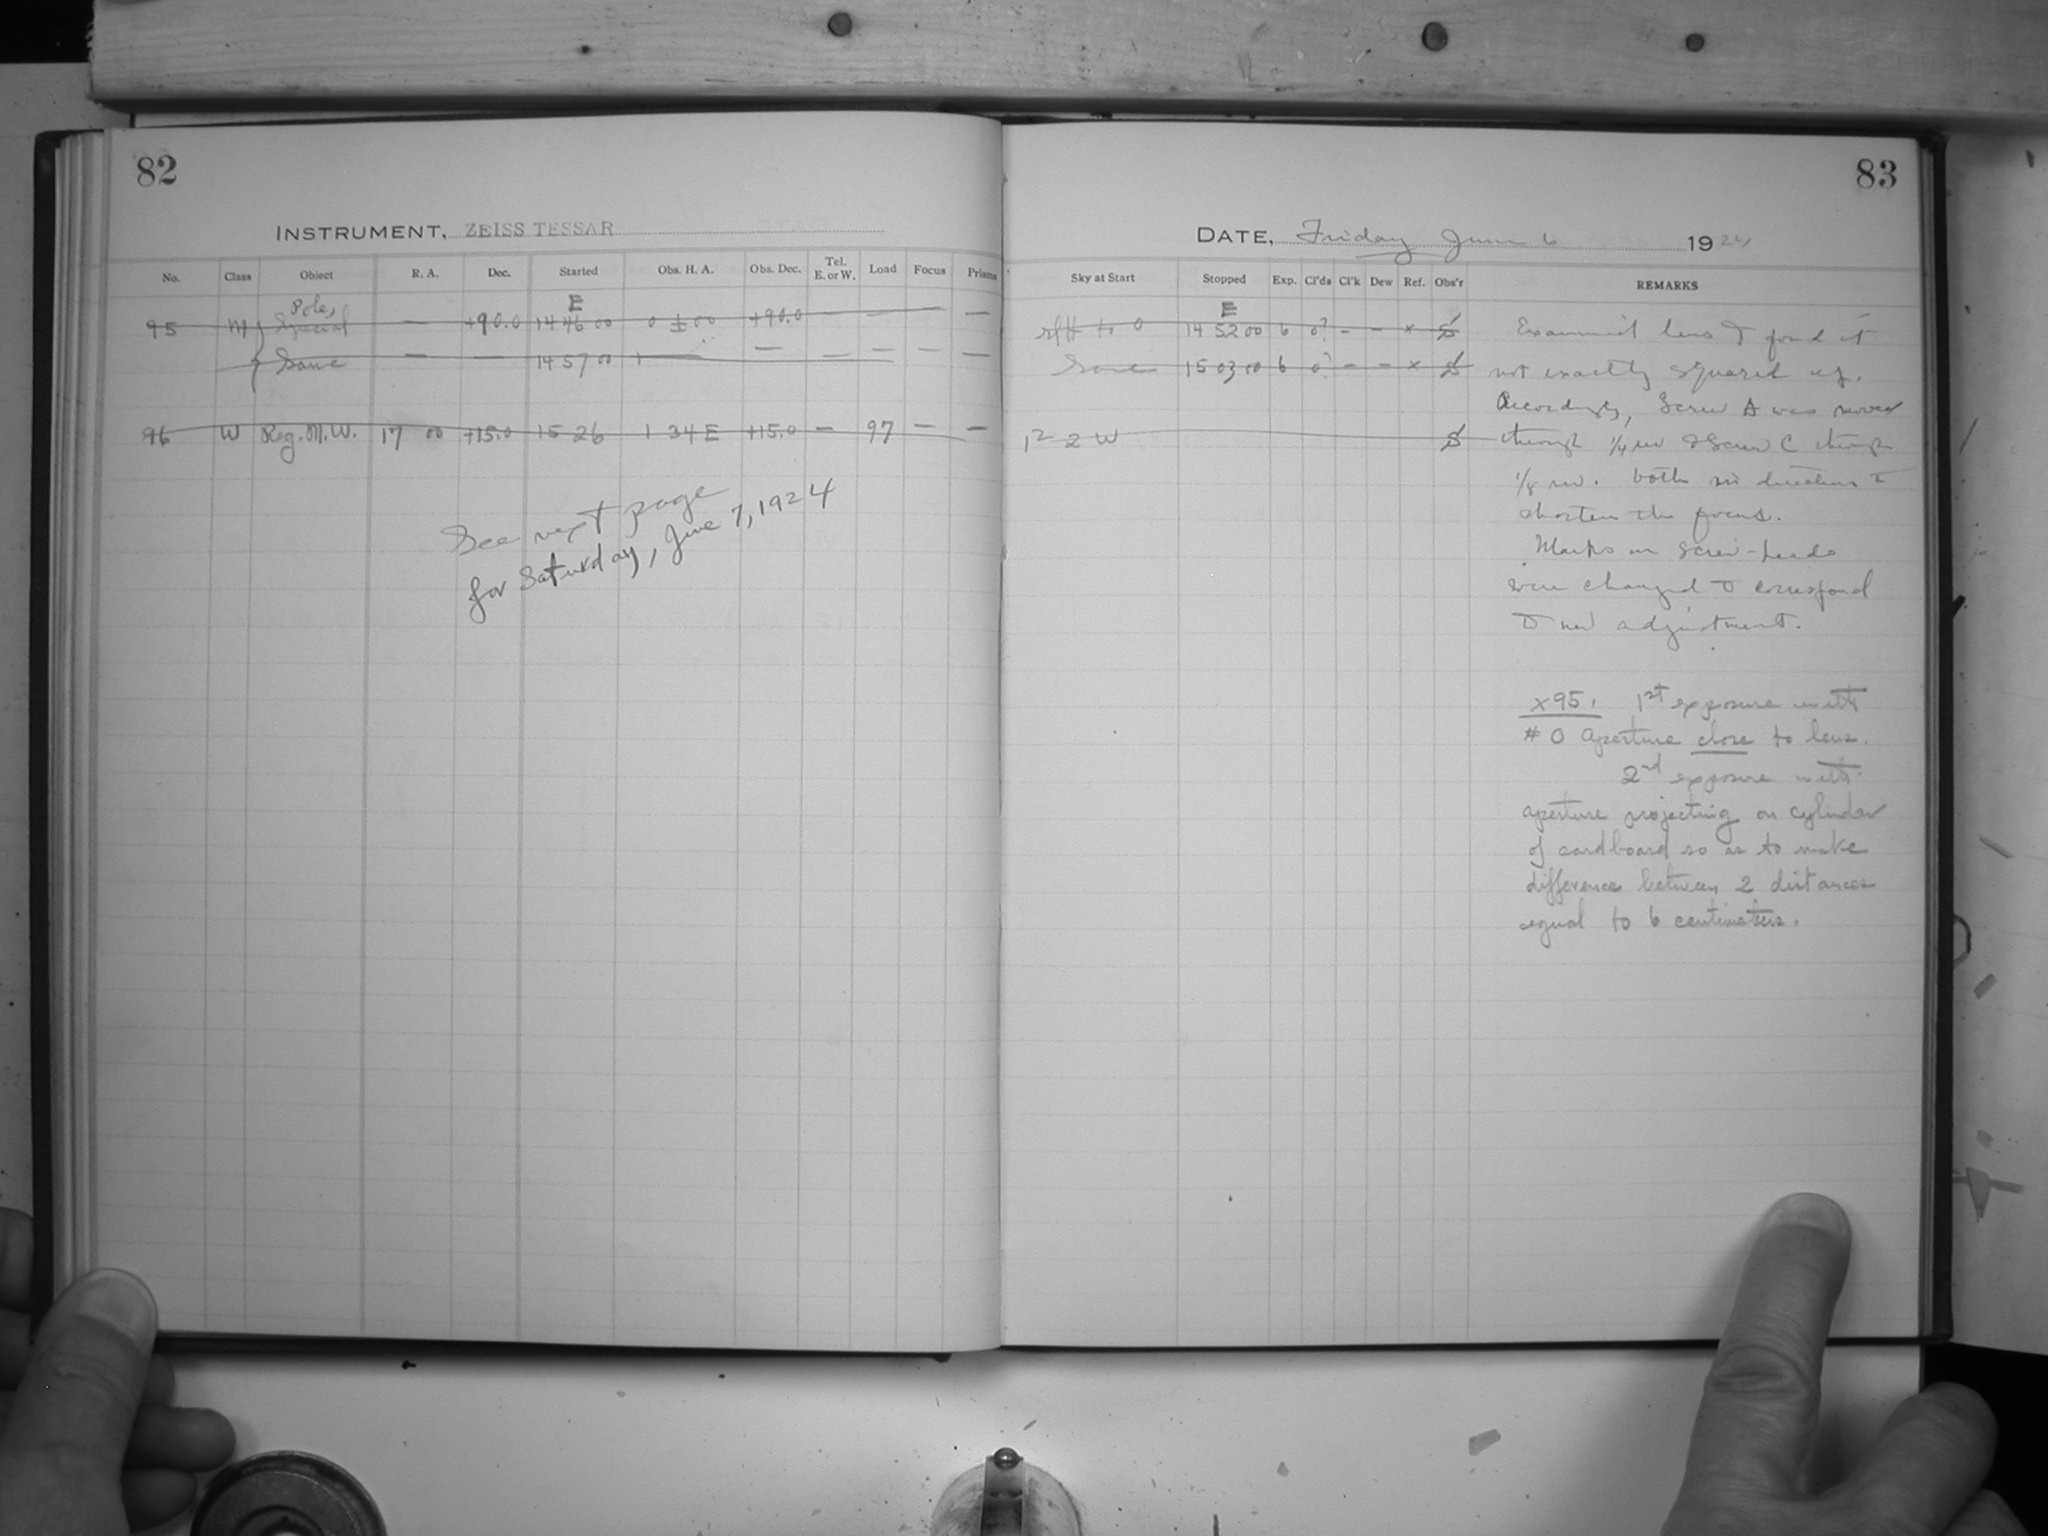 82
INSTRUMENT, ZEISS TESSAR
No. Class Object R. A. Dec. Started Obs. H. A. Obs. Dec. Tel. E. or W. Load Focus Prisms
Pole, E
95 M Special — +90.0 14 46 00 0 ± 00 +90.0 — — — —
Same — — 14 57 00 — — — — —
96 W Reg. M.W. 17 00 +15.0 15 26 1 34 E +15.0 — 97 — —
See next page
for Saturday, June 7, 1924
83
DATE, Friday June 6 1924
Sky at Start Stopped Exp. Cl'ds Cl'k Dew Ref. Obs'r REMARKS
E
to 0 14 52 00 6 0? – – x S
Same 15 03 00 6 0? – – x S
12 2 W S
Examined lens & found it
not exactly squared up.
Accordingly, Screw A was moved
through 1/4 rev & Screw C through
1/8 rev. both in directions to
shorten the focus.
Marks on screw-heads
were changed to correspond
to new adjustment.
x95. 1st exposure with
# 0 aperture close to lens.
2nd exposure with
aperture projecting on cylinder
of cardboard so as to make
difference between 2 distances
equal to 6 centimeters.